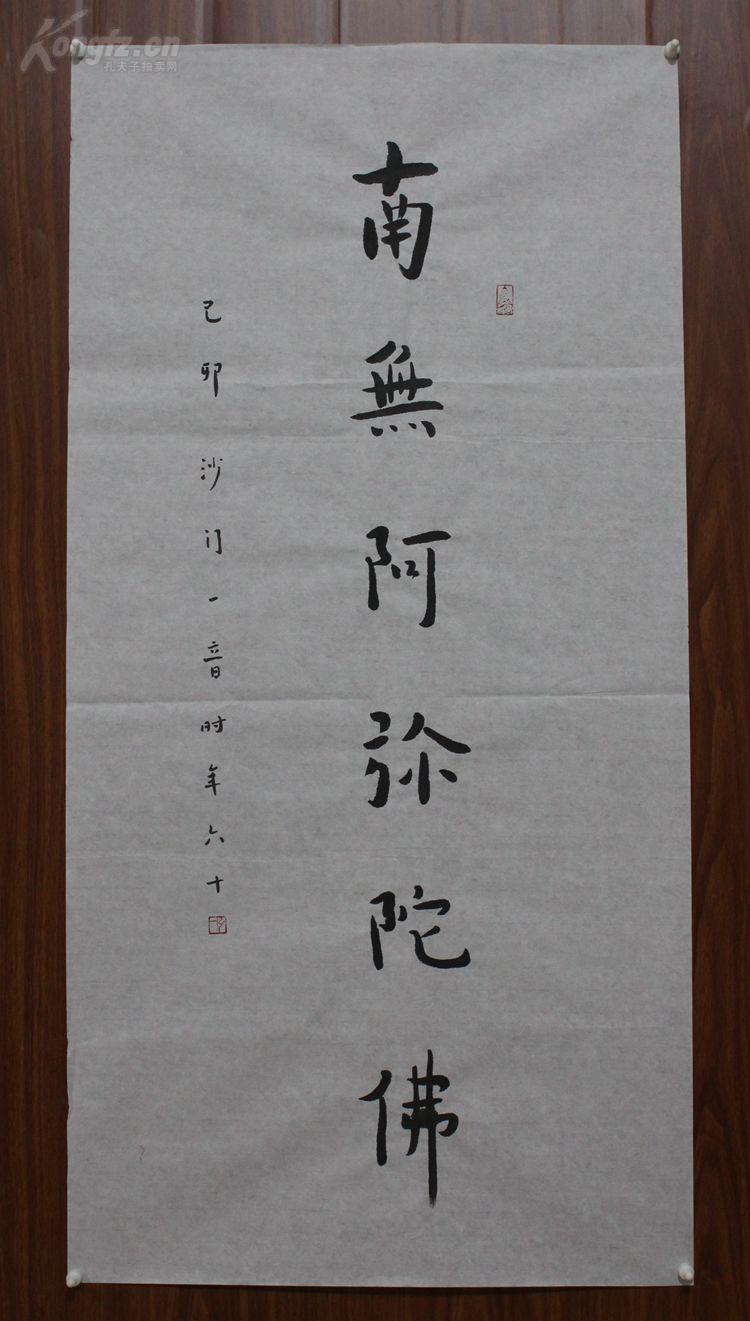 南無阿弥陀佛
己卯沙门一音时年六十
Kongfz.cn
孔夫子拍卖网